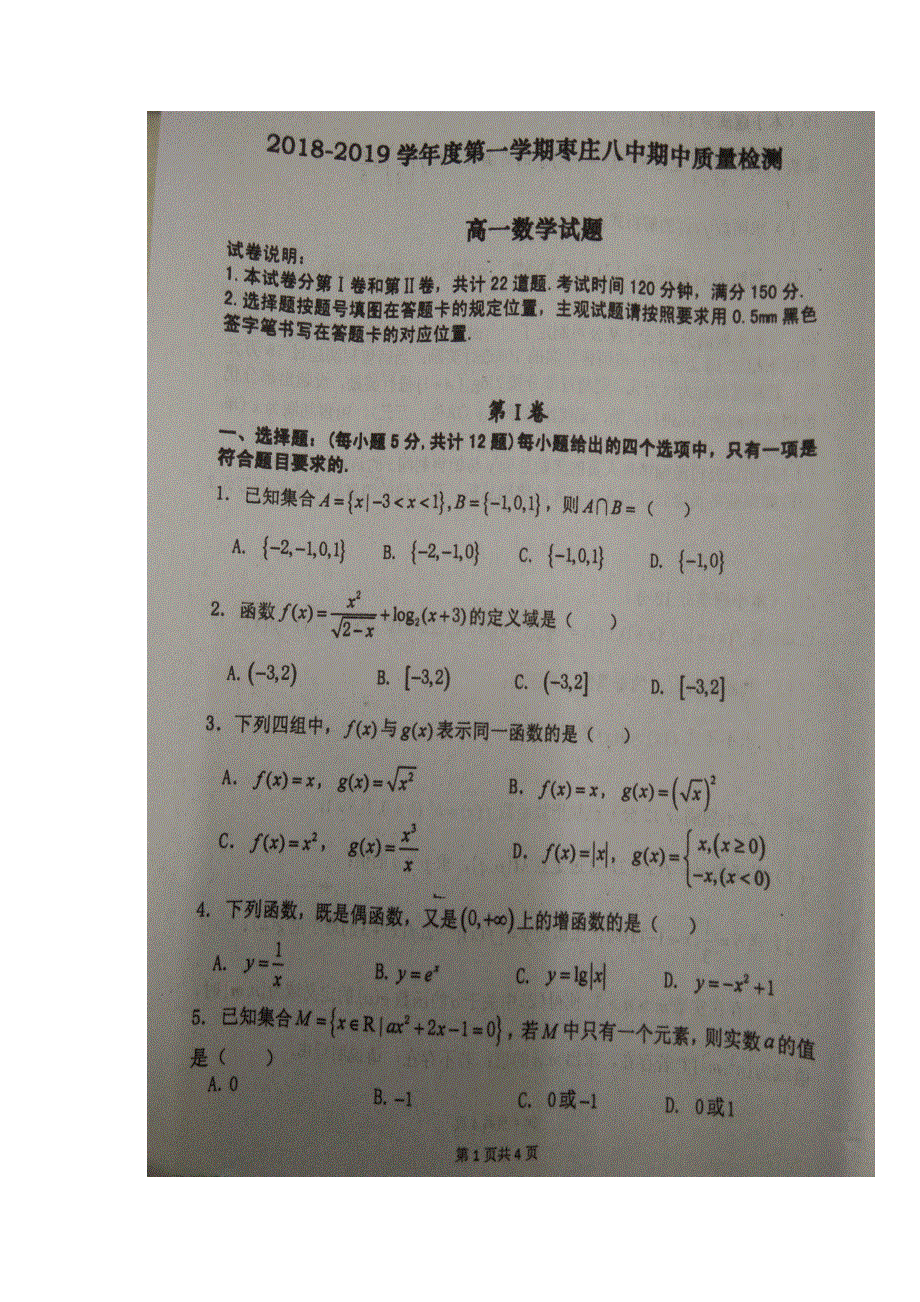 2018-2019 学年度第一学期枣庄八中期中质量检测
高一数学试题
试卷说明:
1.本试卷分第Ⅰ卷和第Ⅱ卷，共计 22 道题.考试时间 120 分钟，满分 150 分.
2.选择题按题号填图在答题卡的规定位置，主观试题请按照要求用 0.5mm 黑色
签字笔书写在答题卡的对应位置.
第 I 卷
一、选择题：(每小题 5 分,共计 12 题)每小题给出的四个选项中，只有一项是
符合题目要求的.
1. 已知集合 A={x|-3<x<1},B={-1,0,1}，则 A∩B=（ ）
A. {-2,-1,0,1} B. {-2,-1,0} C. {-1,0,1} D. {-1,0}
2. 函数 f(x)=x²/√(2-x)+log₂(x+3)的定义域是（ ）
A.(-3,2) B. [-3,2) C. (-3,2] D. [-3,2]
3. 下列四组中，f(x)与g(x)表示同一函数的是（ ）
A. f(x)=x，g(x)=√(x²) B. f(x)=x，g(x)=(√x)²
C. f(x)=x²，g(x)=x³/x D. f(x)=|x|，g(x)={x,(x≥0) -x,(x<0)
4. 下列函数，既是偶函数，又是(0,+∞)上的增函数的是（ ）
A. y=1/x B. y=eˣ C. y=lg|x| D. y=-x²+1
5. 已知集合 M={x∈R|ax²+2x-1=0}，若 M 中只有一个元素，则实数 a 的值
是（ ）
A.0 B.-1 C. 0或-1 D. 0或1
第 1 页共 4 页